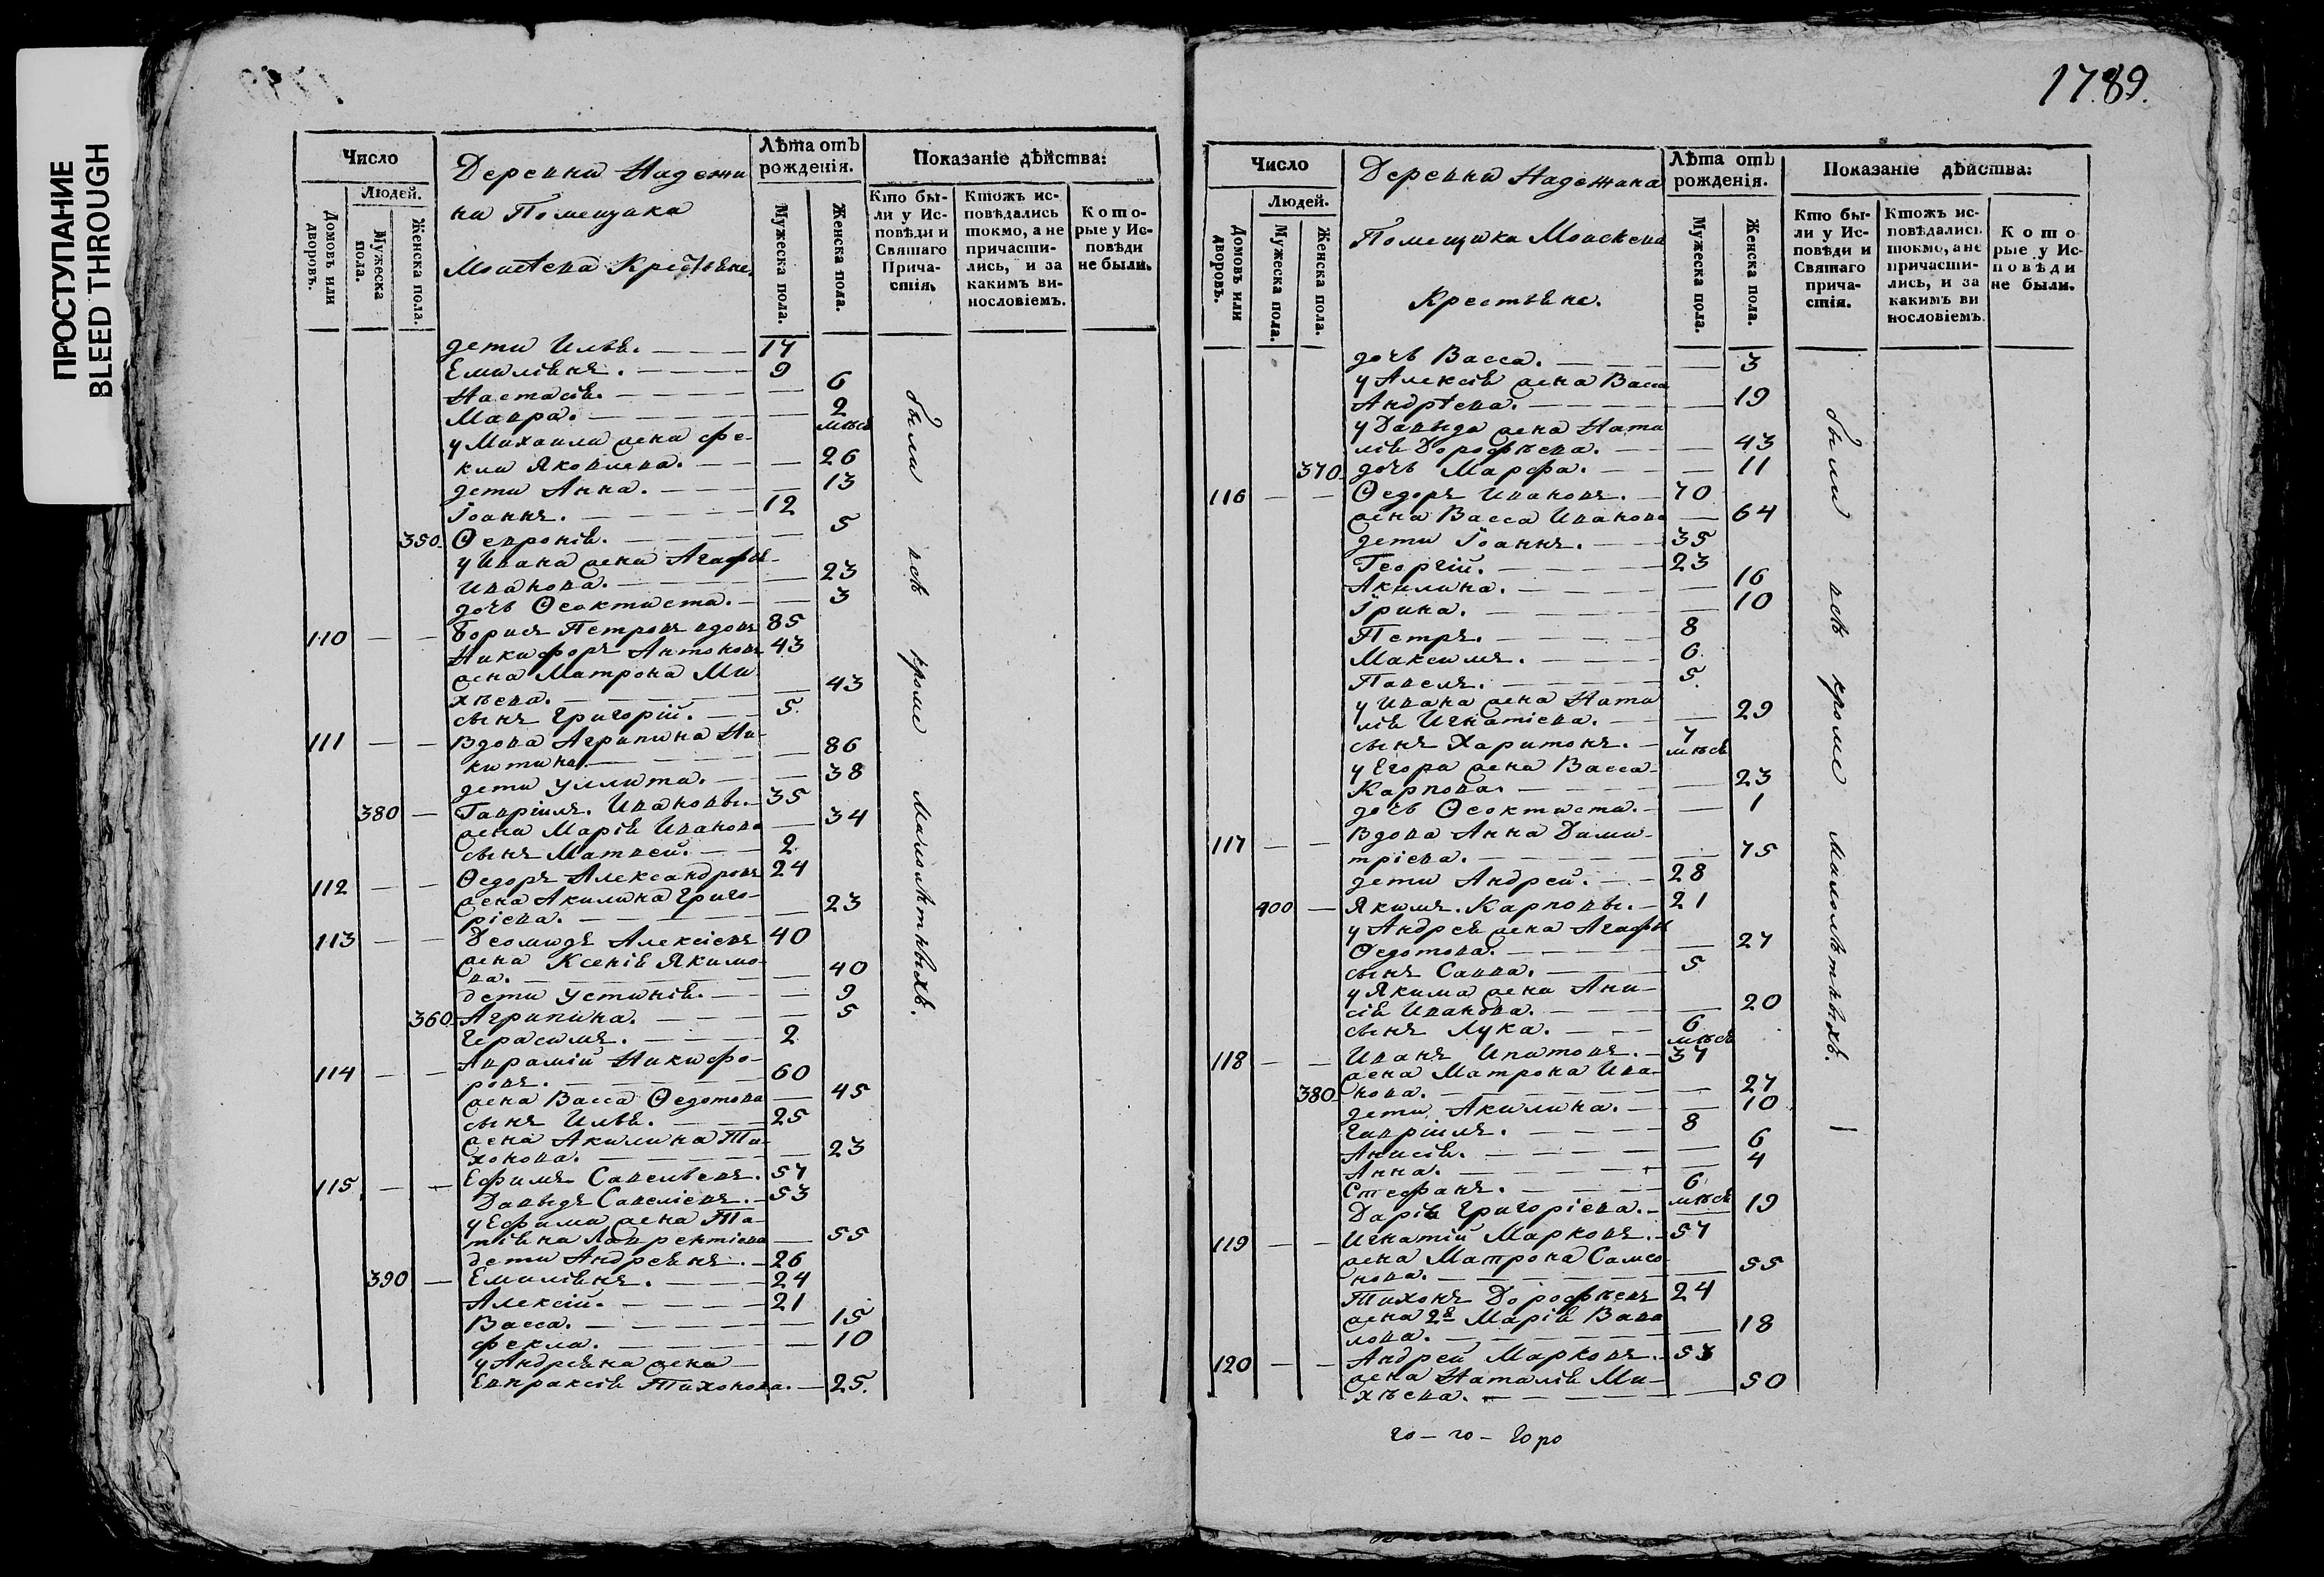 ПРОСТУПАНИЕ
BLEED THROUGH
Число
Людей.
Домовъ или дворовъ.
Мужеска пола.
Женска пола.
Деревни Надежи
ни Помещика
Моисѣева Крестьяне.
Лѣта отъ рожденія.
Мужеска пола.
Женска пола.
Показаніе дѣйства:
Кто бы-
ли у Ис-
повѣди и
Святаго
Прича-
стія.
Ктожъ ис-
повѣдались
токмо, а не
причасти-
лись, и за
какимъ ви-
нословіемъ.
Кото-
рые у Ис-
повѣди
не были.
дети Илья. 17
Емиліянъ. 9
Настасія. 6
Мавра. 2 мѣся
у Михаила жена Фе-
кла Яковлева. 26
дети Анна. 13
Іоаннъ. 12
350. Ѳевронія. 5
у Ивана жена Агафья
Иванова. 23
дочь Ѳеоктиста. 3
110 Борисъ Петровъ вдовъ 85
Никифоръ Антоновъ 43
жена Матрона Ми-
хѣева. 43
сынъ Григорій. 5.
111 Вдова Агрипина Ни-
китина. 86
дети Уллита. 38
380 Гавріилъ. Ивановы. 35
жена Марія Иванова 34
сынъ Матвей. 2
112 Ѳедоръ Александровъ 24
жена Акилина Григо-
ріева. 23
113 Деомидъ Алексіевъ 40
жена Ксенія Якимо-
ва. 40
дети Устинія. 9
360. Агрипина. 5
Герасимъ. 2
114 Аврамій Никифо-
ровъ. 60
жена Васса Ѳедотова 45
сынъ Илья. 25
жена Акилина Ти-
хонова. 23
115 Ефимъ Савельевъ. 57
Давыдъ Савеліевъ. 53
у Ефима жена Та-
тіяна Лаврентіева 55
дети Андреянъ. 26
390 Емиліянъ. 24
Алексій. 21
Васса. 15
Фекла. 10
у Андреяна жена
Евпраксія Тихонова. 25.
были всѣ кроме малолѣтныхъ.
1789.
Число
Людей.
Домовъ или дворовъ.
Мужеска пола.
Женска пола.
Деревни Надежина
Помещика Моисѣева
Крестьяне.
Лѣта отъ рожденія.
Мужеска пола.
Женска пола.
Показаніе дѣйства:
Кто бы-
ли у Ис-
повѣди и
Святаго
прича-
стія.
Ктожъ ис-
повѣдались
токмо, а не
причасти-
лись, и за
какимъ ви
нословіемъ.
Кото
рые у Ис-
повѣди
не были.
дочь Васса. 3
у Алексія жена Васса
Андрѣева. 19
у Давыда жена Ната
лія Дорофѣева. 43
370. дочь Марфа. 11
116 Ѳедоръ Ивановъ. 70
жена Васса Иванова 64
дети Іоаннъ. 35
Георгій. 23
Акилина. 16
Ірина. 10
Петръ. 8
Максимъ. 6.
Павелъ. 5.
у Ивана жена Ната
лія Игнатіева. 29
сынъ Харитонъ. 7 мѣся
у Егора жена Васса
Карпова. 23
дочь Ѳеоктиста. 1
117 Вдова Анна Дими-
тріева. 75
дети Андрей. 28
400 Якимъ. Карповы. 21
у Андрея жена Агафья
Ѳедотова. 27
сынъ Савва. 5
у Якима жена Ани-
сія Иванова. 20
сынъ Лука. 6 мѣся
118 Иванъ Ипатовъ. 37
жена Матрона Ива-
380 нова. 27
дети Акилина. 10
Гавріилъ. 8
Анисія. 6
Анна. 4
Стефанъ. 6 мѣся
Дарія Григоріева. 19
119 Игнатій Марковъ. 57
жена Матрона Самсо
нова. 55
Тихонъ Дорофѣевъ 24
жена 2я Марія Вави
лова. 18
120 Андрей Марковъ. 53
жена Наталія Ми-
хѣева. 50
были всѣ кроме малолѣтныхъ.